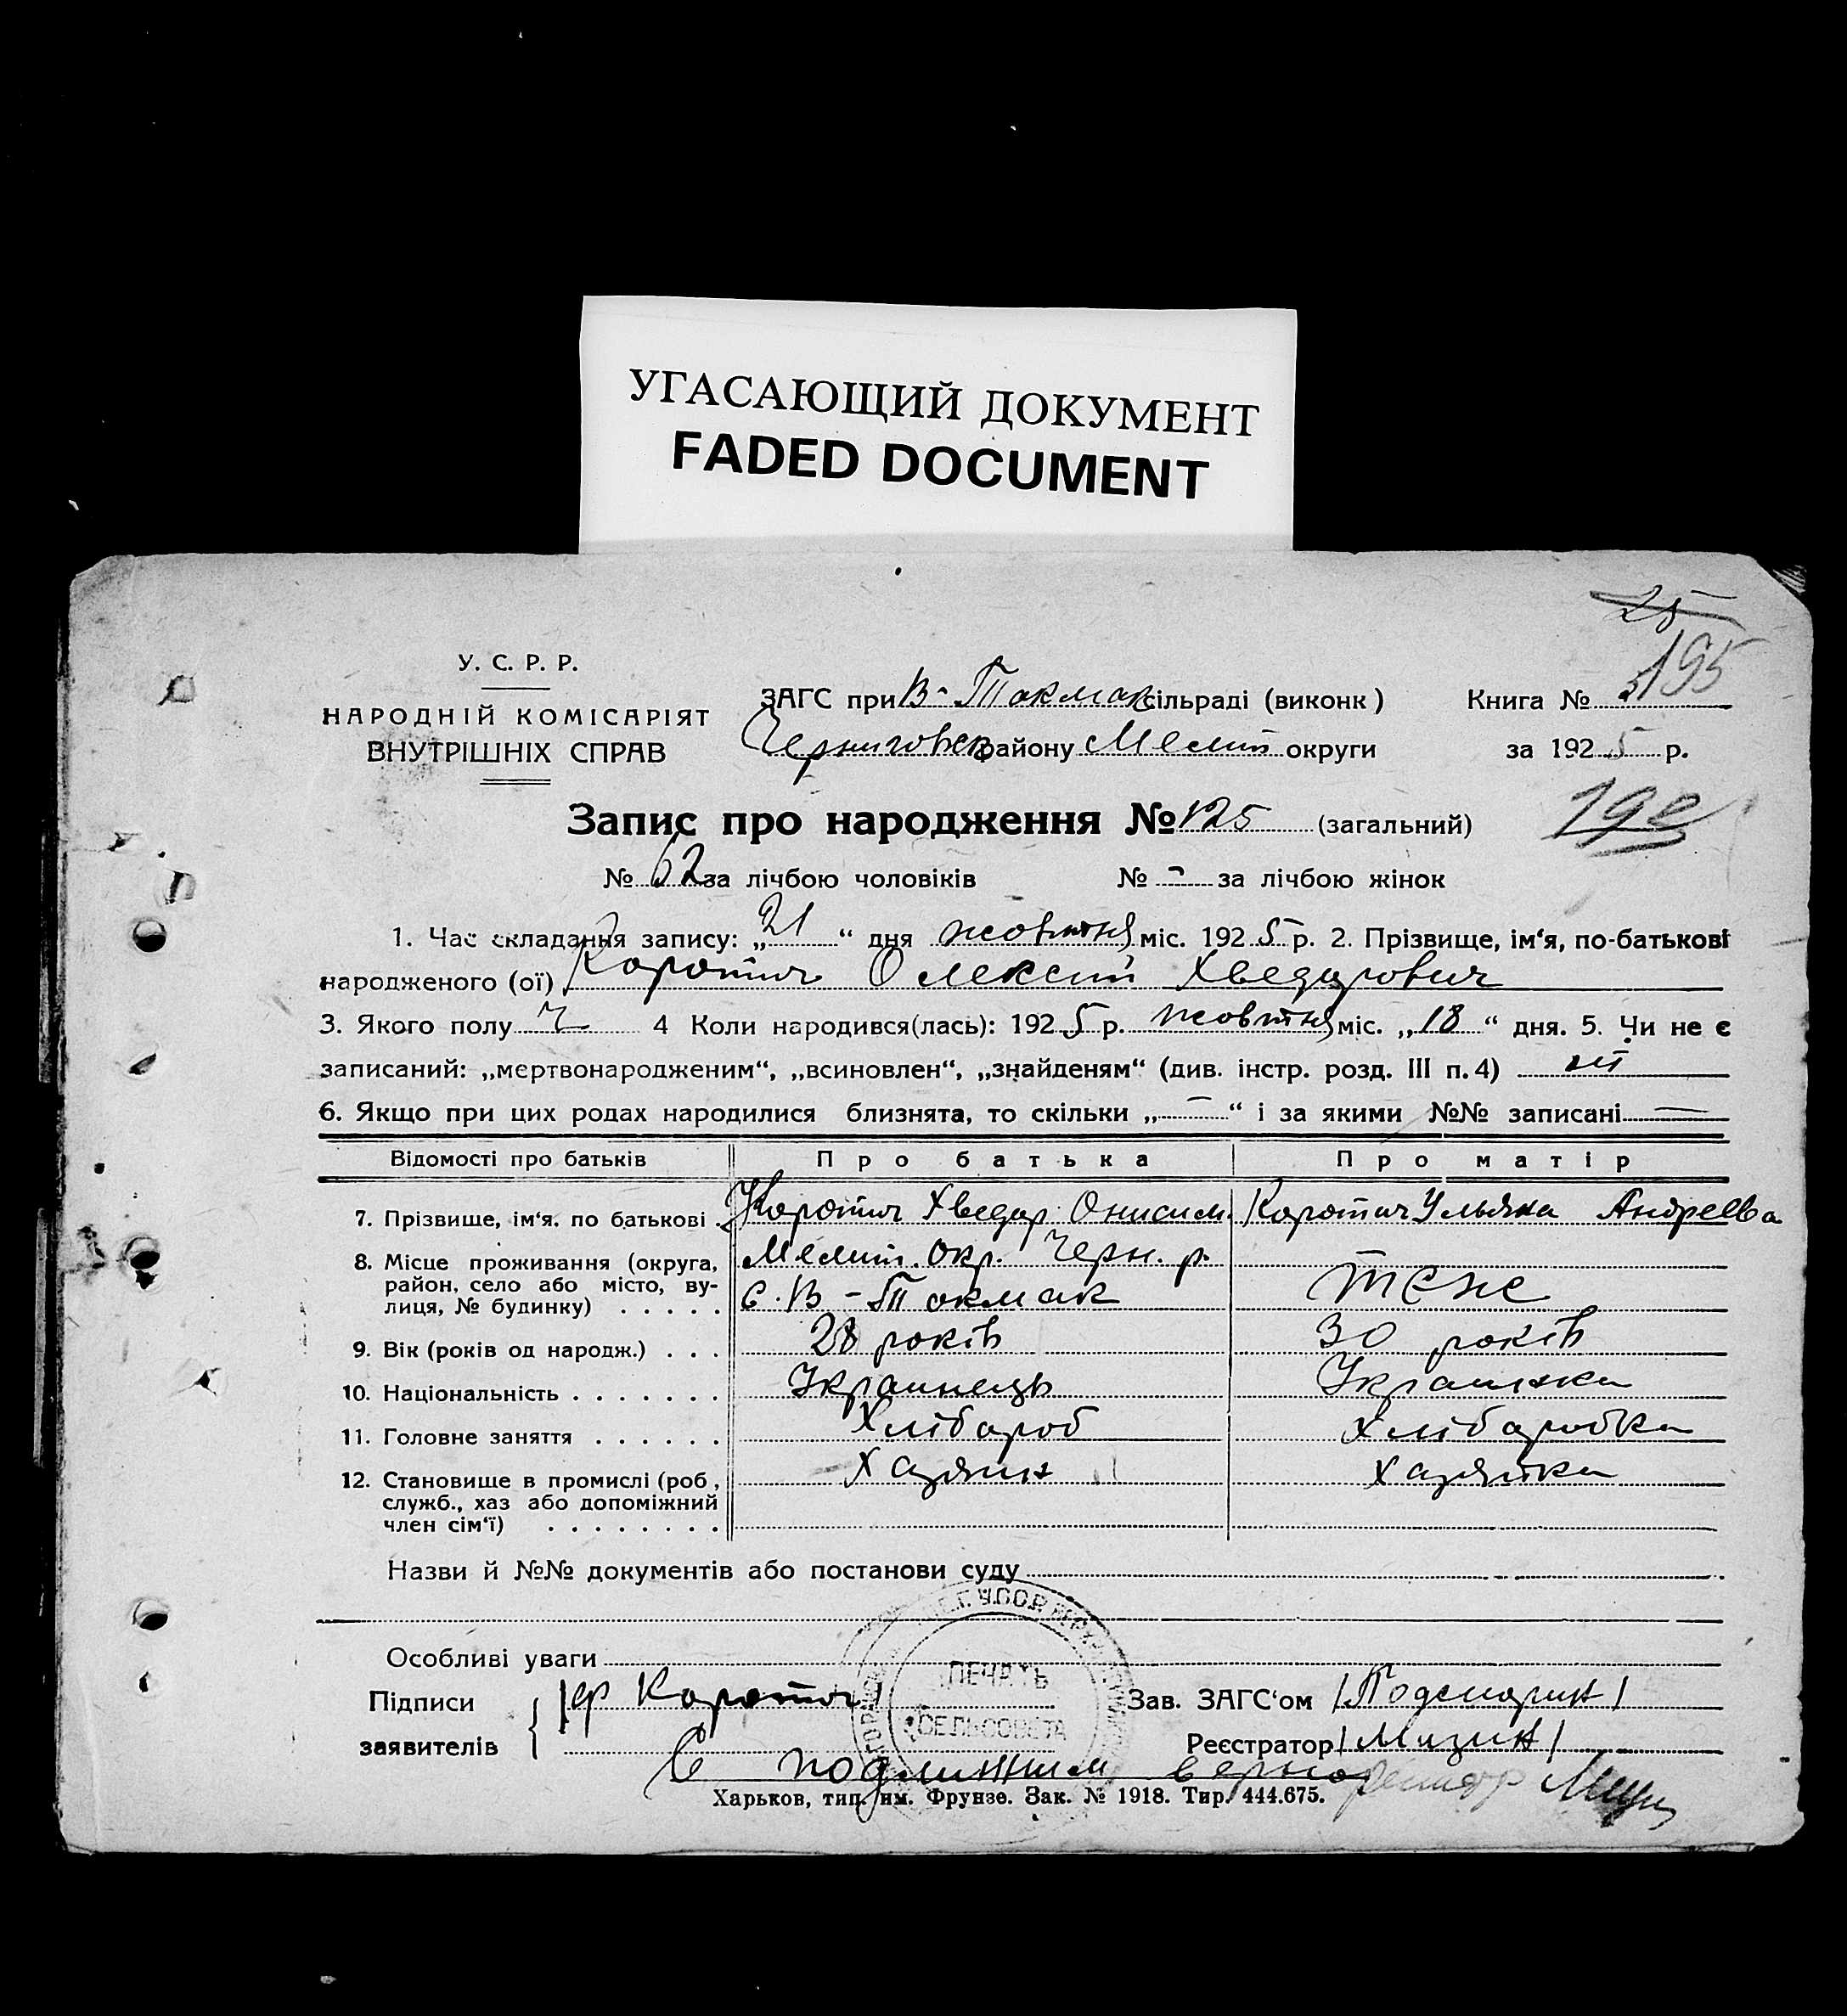 УГАСАЮЩИЙ ДОКУМЕНТ
FADED DOCUMENT
25
195
У. С. Р. Р.
НАРОДНІЙ КОМІСАРІЯТ
ВНУТРІШНІХ СПРАВ
ЗАГС при В-Токмак сільраді (виконк) Книга №
Черниговск району Мелит округи за 1925 р.
Запис про народження № 125 (загальний)
№ 62 за лічбою чоловіків № - за лічбою жінок
1. Час складання запису: „21“ дня жовтня міс. 1925 р. 2. Прізвище, ім‘я, по-батькові
народженого (ої) Коротич Олексій Хведорович
3. Якого полу ч 4 Коли народився(лась): 1925 р. жовтня міс. „18“ дня. 5. Чи не є
записаний: „мертвонародженим“, „всиновлен“, „знайденям“ (див. інстр. розд. III п. 4) ні
6. Якщо при цих родах народилися близнята, то скільки „—“ і за якими №№ записані —
Відомості про батьків Про батька Про матір
7. Прізвище, ім‘я, по батькові . Коротич Хведор Онисим. Коротич Ульяна Андреевна
8. Місце проживання (округа, Мелит. окр. Черн. р.
район, село або місто, ву- с. В-Токмак теж
лиця, № будинку) . . . . .
9. Вік (років од народж.) . . . 28 років 30 років
10. Національність . . . . . . . Українець Українка
11. Головне заняття . . . . . . Хлібороб Хліборобка
12. Становище в промислі (роб., Хазяїн Хазяйка
служб., хаз або допоміжний
член сім‘ї) . . . . . . . .
Назви й №№ документів або постанови суду
Особливі уваги
ПЕЧАТЬ
СЕЛЬСОВЕТА
Підписи /Ф Коротич/ Зав. ЗАГС‘ом
заявителів Реєстратор /Мизин/
С подлинним верно
Харьков, тип. им. Фрунзе. Зак. № 1918. Тир. 444.675.